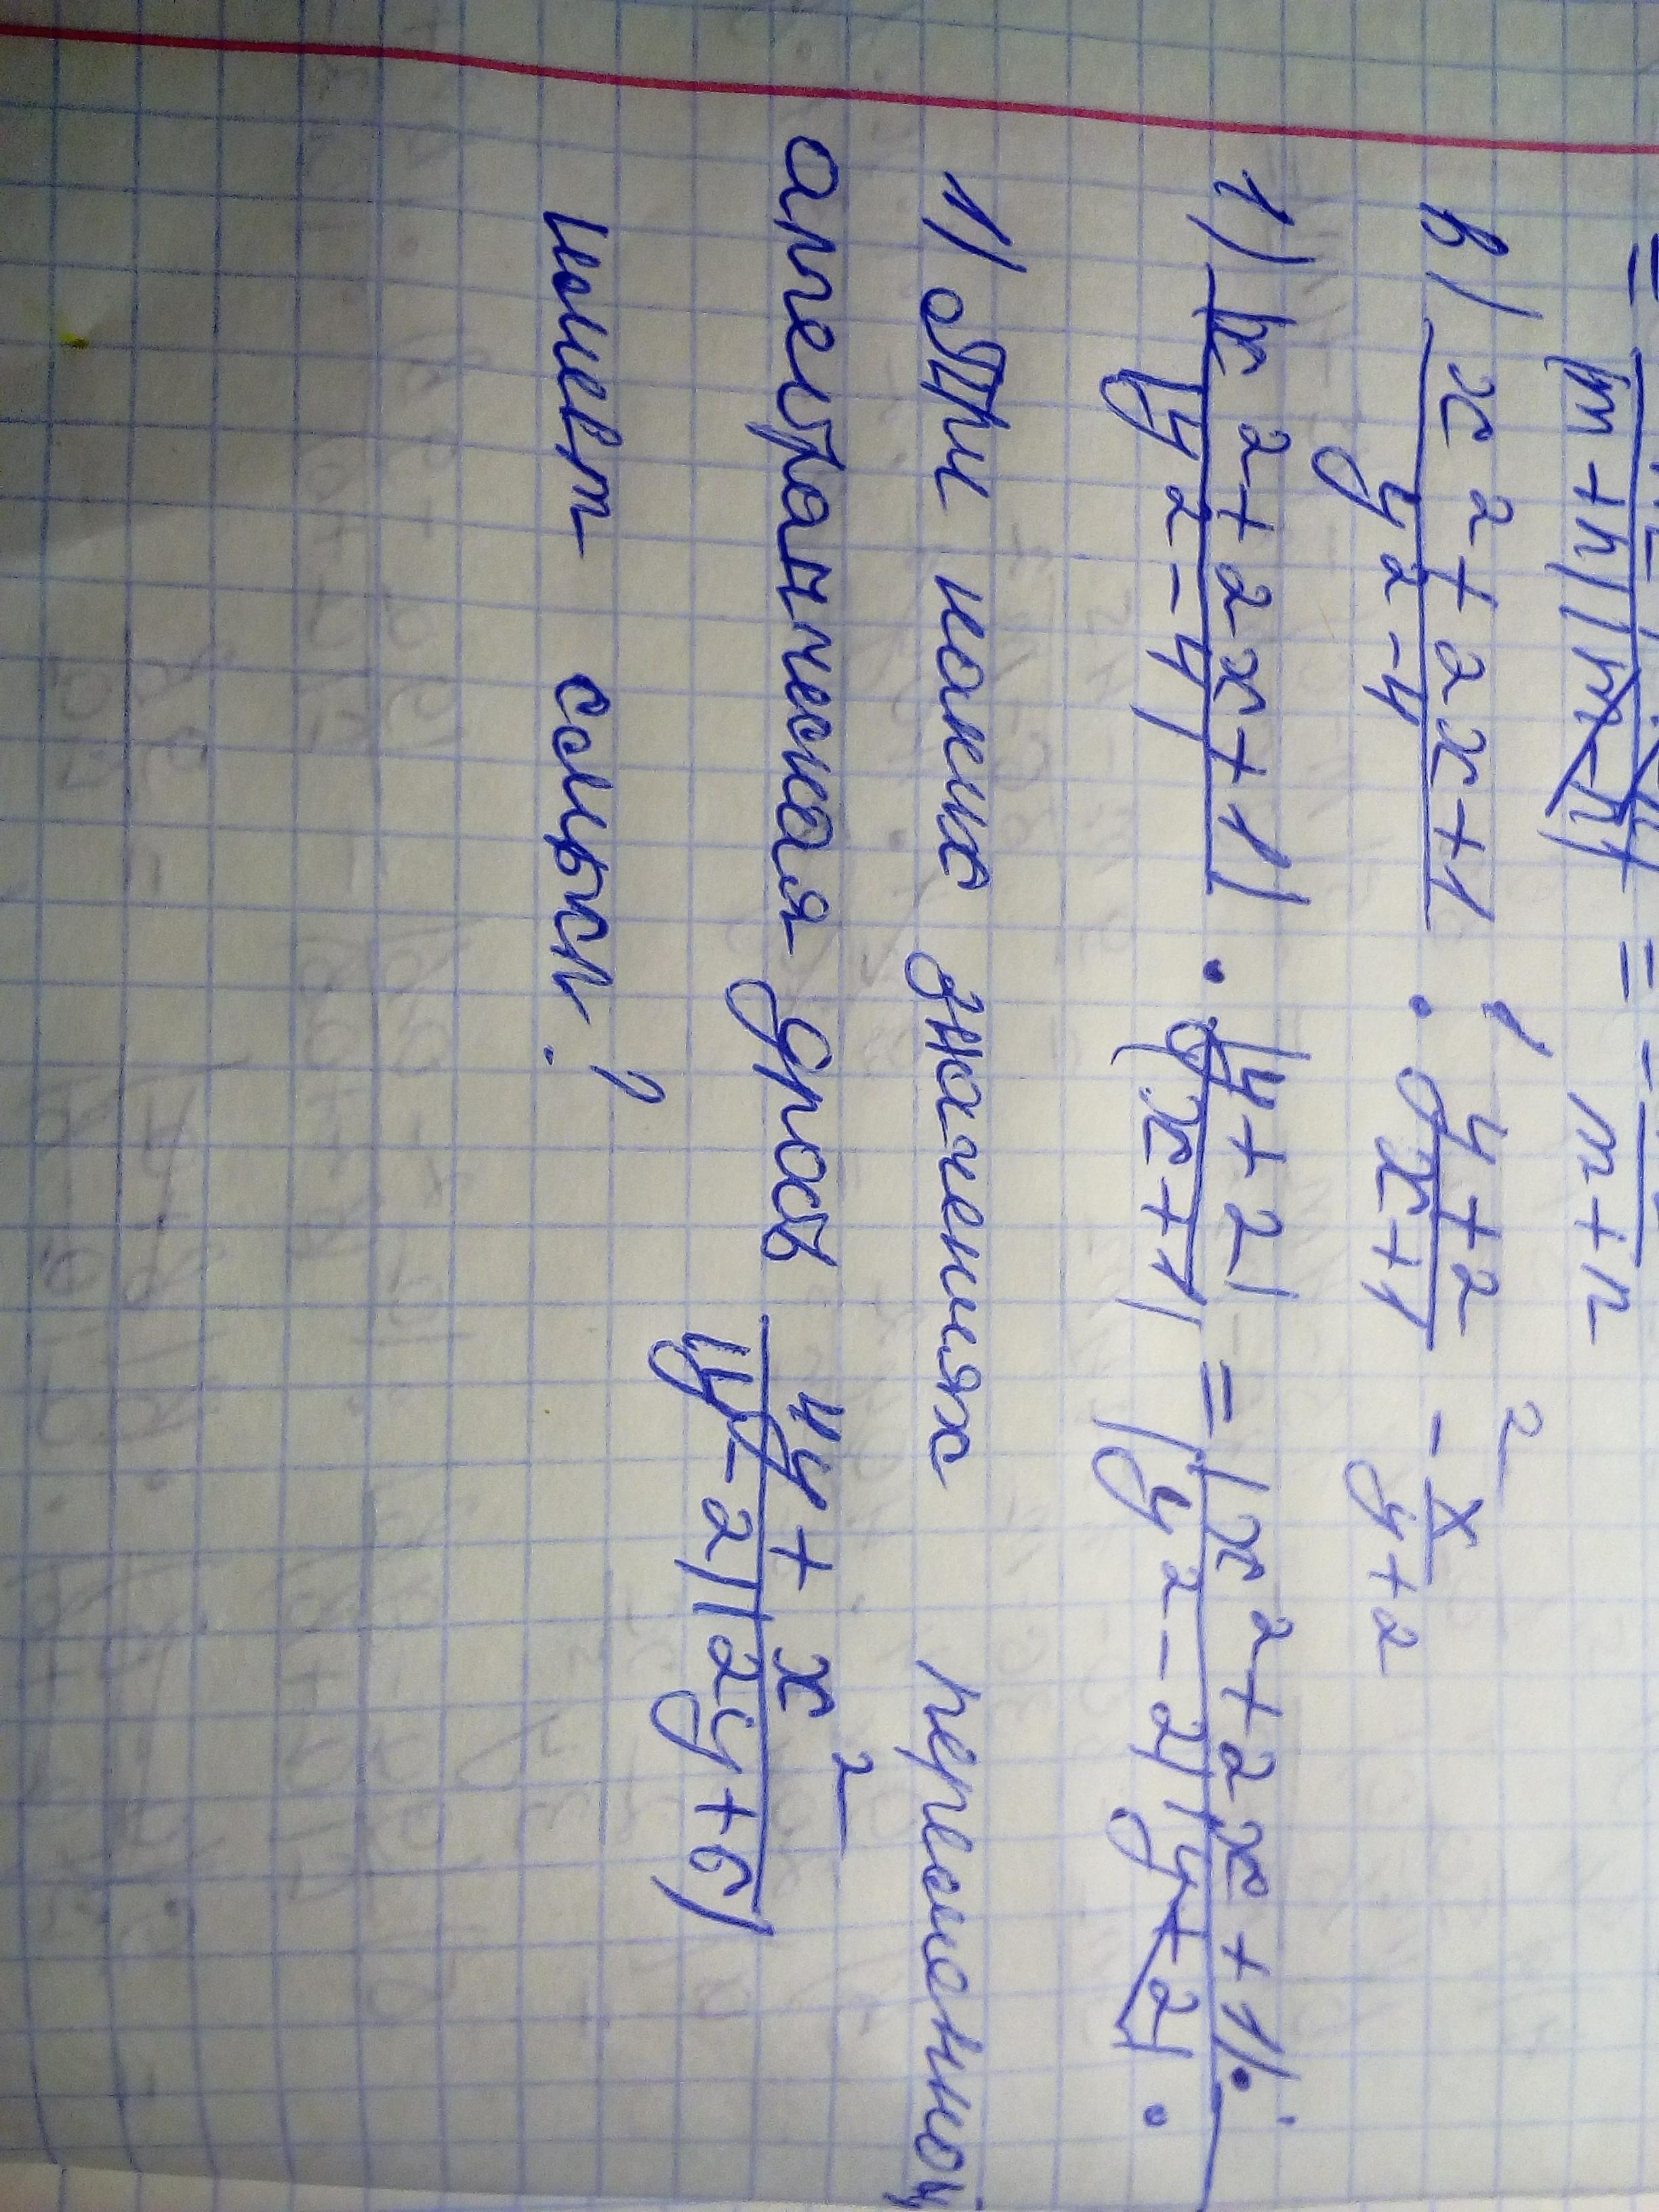 = (m+n)(m-n) = - m+n
в) x²+2x+1 / y²-4 · y+2 / x+1 - x / y+2
1 2
1) (x²+2x+1) / (y²-4) · (y+2) / (x+1) = (x²+2x+1) · / (y²-2)(y+2) ·
1) При каких значениях переменной
алгебраическая дробь 4y+x² / (y-2)(2y+6)
имеет смысл?